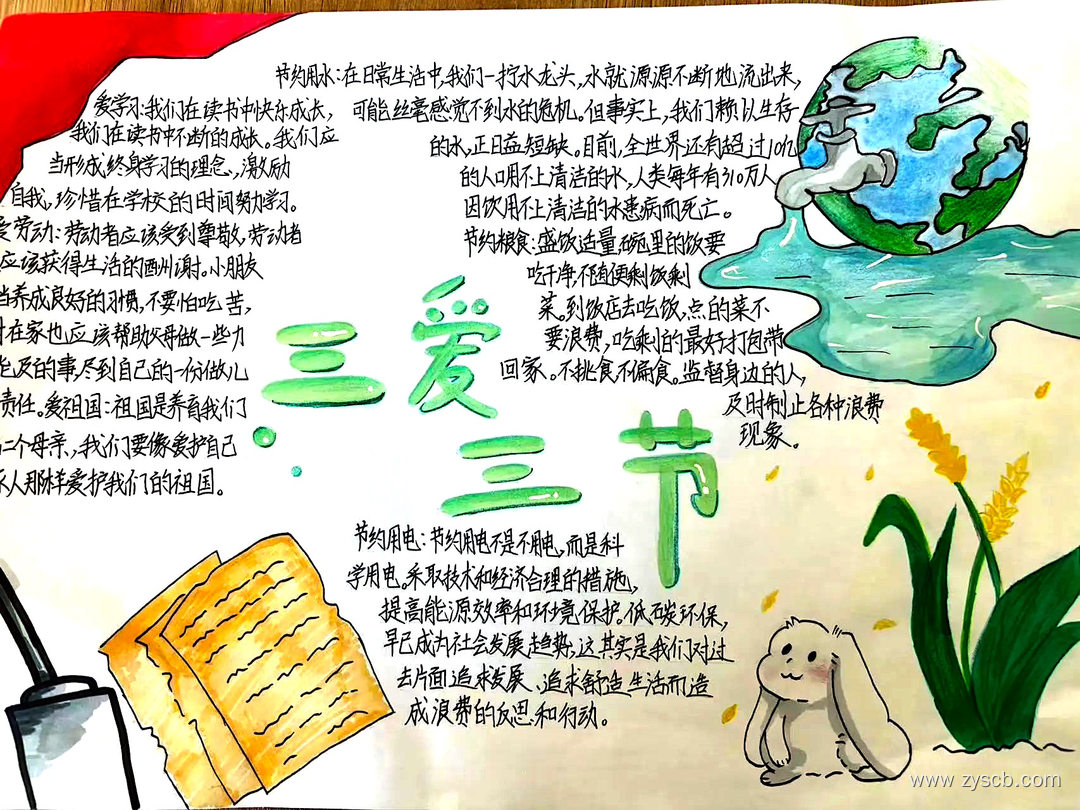 三爱
三节
爱学习:我们在读书中快乐成长,
我们在读书中不断的成长。我们应
当形成终身学习的理念,激励
自我,珍惜在学校的时间努力学习。
爱劳动:劳动者应该受到尊敬,劳动者
应该获得生活的酬谢。小朋友
当养成良好的习惯,不要怕吃苦,
在家也应该帮助父母做一些力
及的事,尽到自己的一份做儿
责任。爱祖国:祖国是养育我们
二个母亲,我们要像爱护自己
人那样爱护我们的祖国。
节约用水:在日常生活中,我们一拧水龙头,水就源源不断地流出来,
可能丝毫感觉不到水的危机。但事实上,我们赖以生存
的水,正日益短缺。目前,全世界还有超过10亿
的人口用不上清洁的水,人类每年有310万人
因饮用不上清洁的水患病而死亡。
节约粮食:盛饭适量,碗里的饭要
吃干净,不随便剩饭剩
菜。到饭店去吃饭,点的菜不
要浪费,吃剩的最好打包带
回家。不挑食不偏食。监督身边的人,
及时制止各种浪费
现象。
节约用电:节约用电不是不用电,而是科
学用电。采取技术和经济合理的措施,
提高能源效率和环境保护。低碳环保,
早已成为社会发展趋势,这其实是我们对过
去片面追求发展、追求舒适生活而造
成浪费的反思和行动。
www.zyscb.com